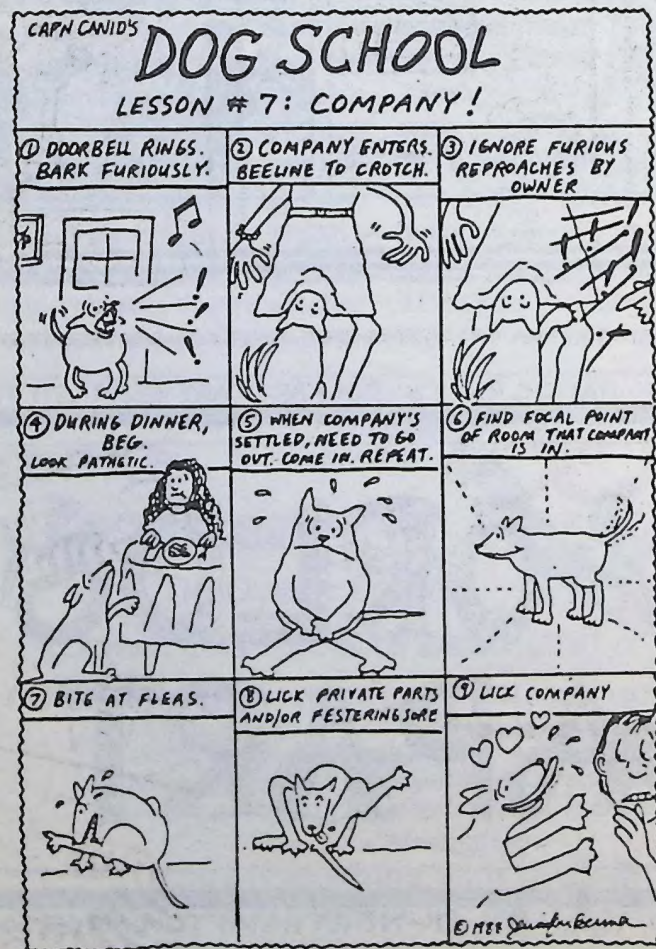 CAPN CANID'S
DOG SCHOOL
LESSON # 7: COMPANY!
① DOORBELL RINGS.
BARK FURIOUSLY.
② COMPANY ENTERS.
BEELINE TO CROTCH.
③ IGNORE FURIOUS
REPROACHES BY
OWNER
④ DURING DINNER,
BEG.
LOOK PATHETIC.
⑤ WHEN COMPANY'S
SETTLED, NEED TO GO
OUT. COME IN. REPEAT.
⑥ FIND FOCAL POINT
OF ROOM THAT COMPANY
IS IN.
⑦ BITE AT FLEAS.
⑧ LICK PRIVATE PARTS
AND/OR FESTERING SORE
⑨ LICK COMPANY
© 1988 Jennifer Berman